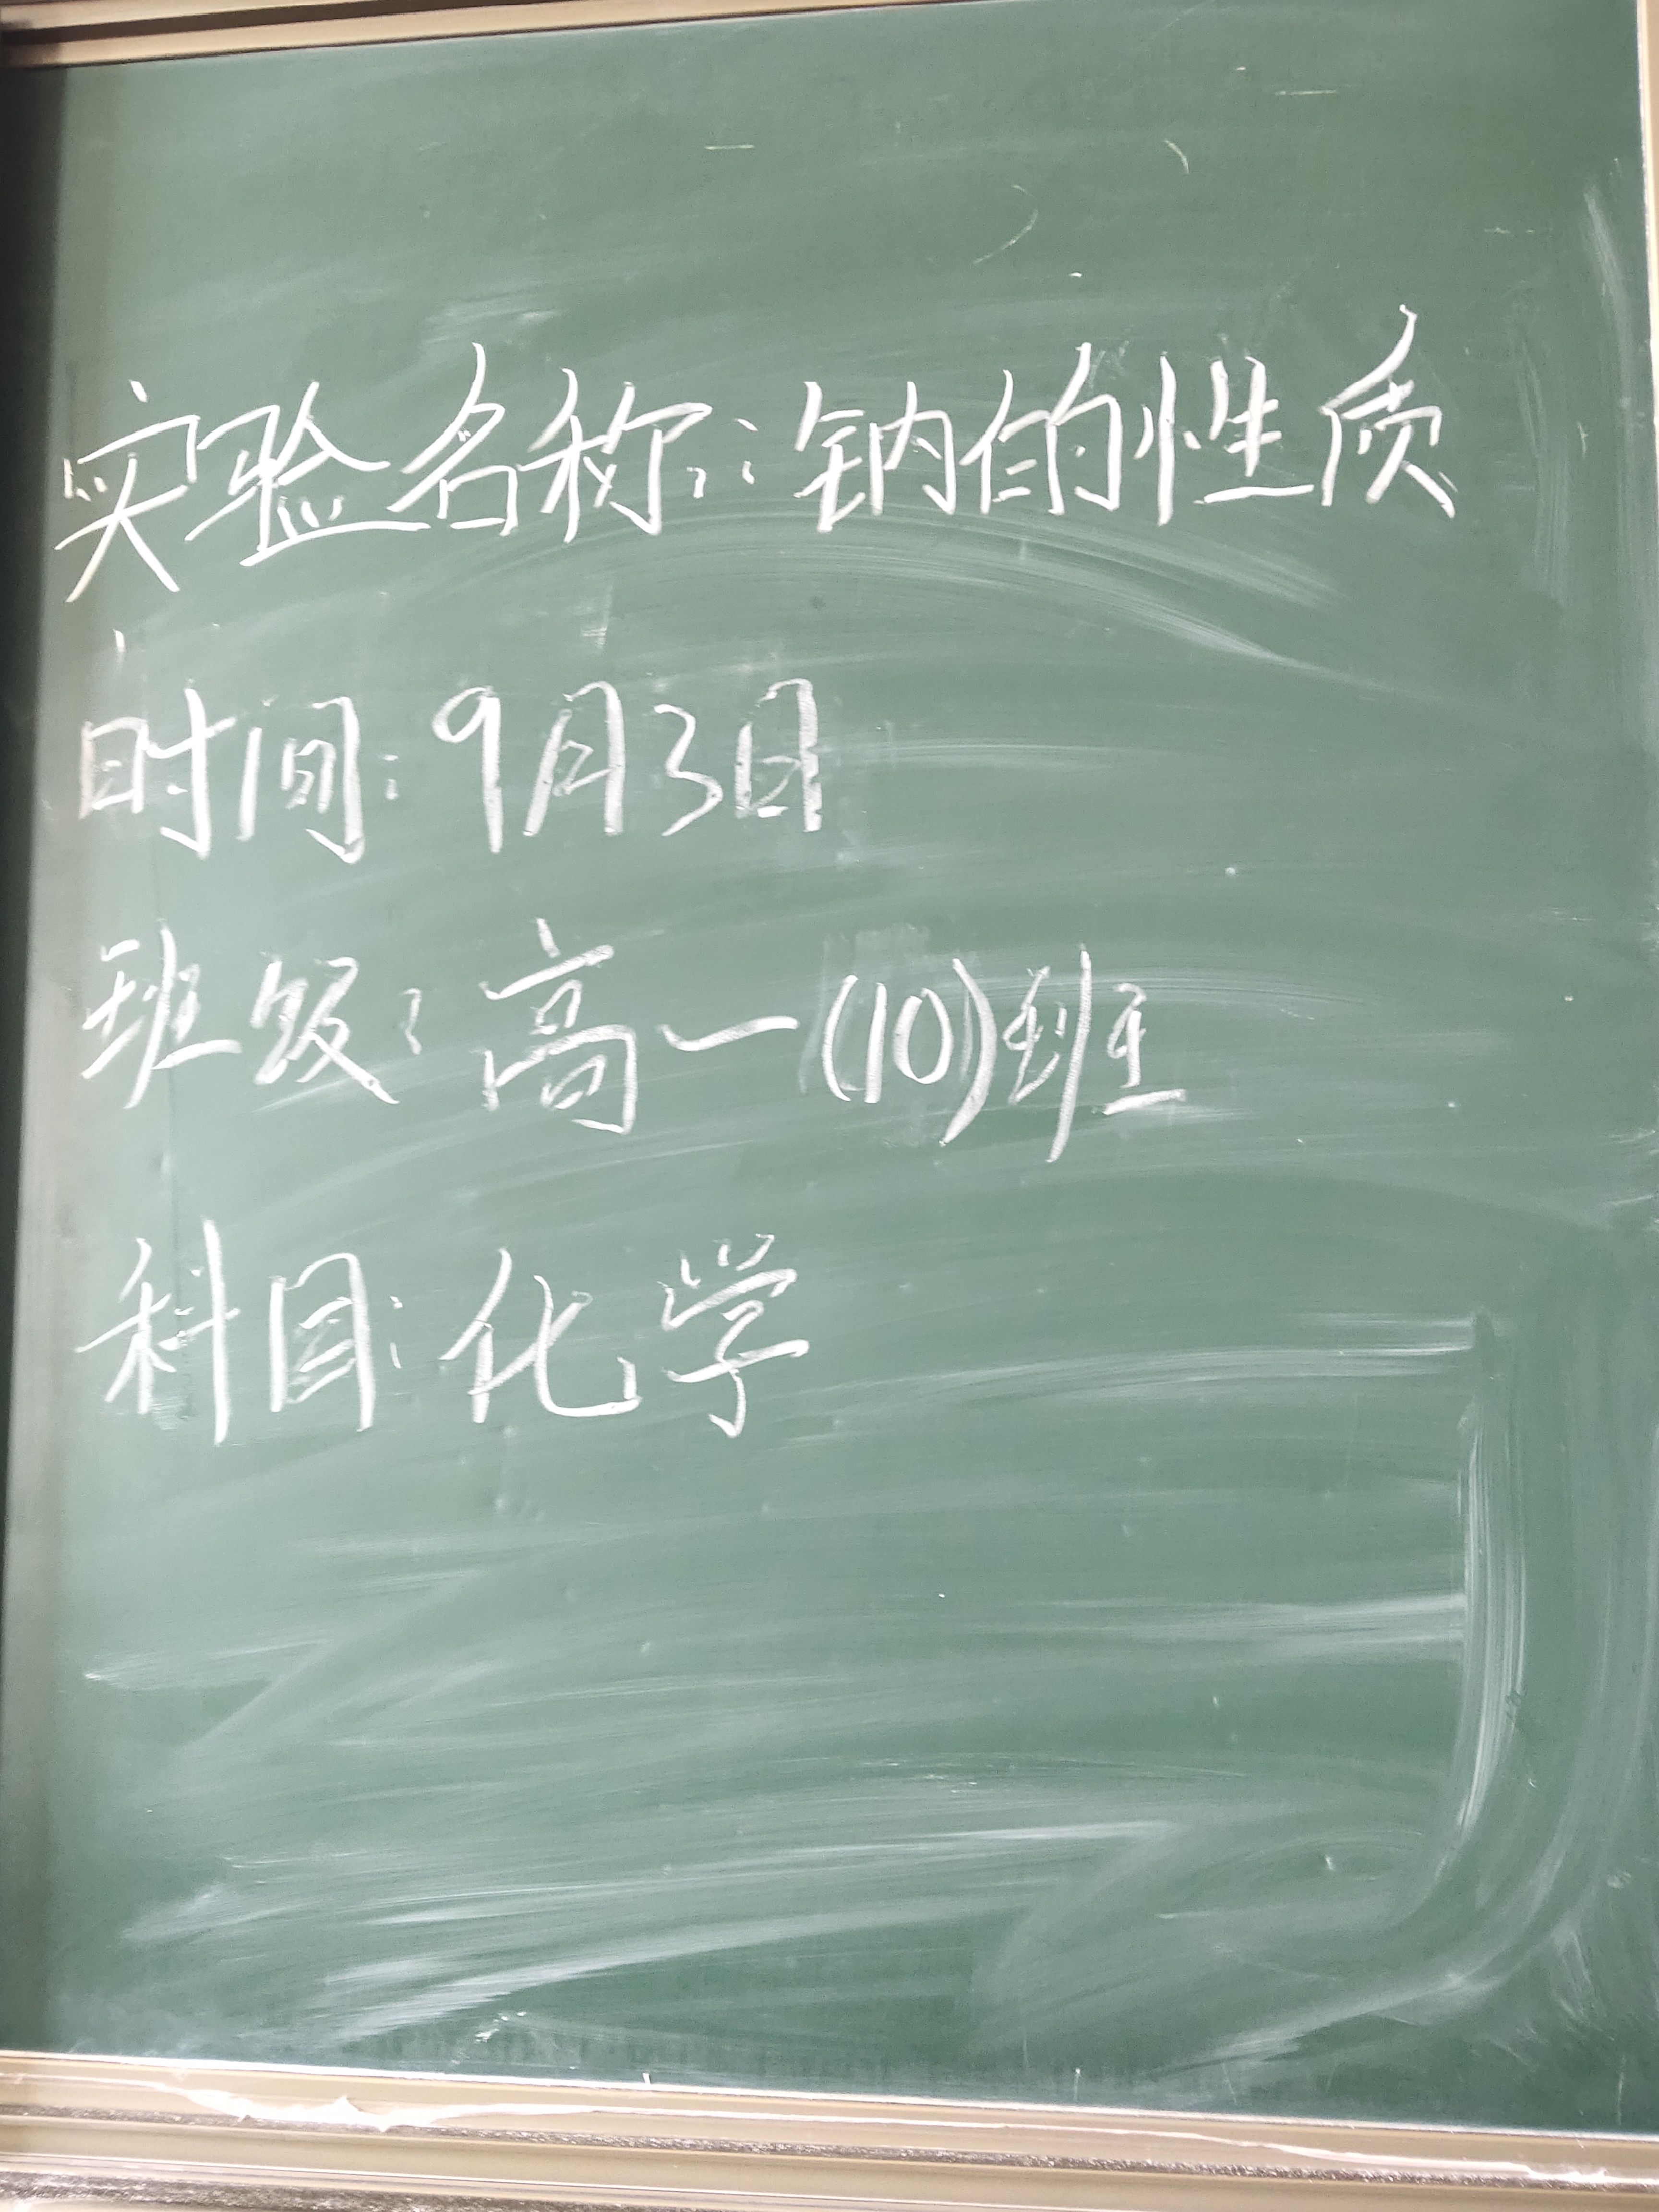 实验名称:钠的性质
时间:9月3日
班级:高一(10)班
科目:化学